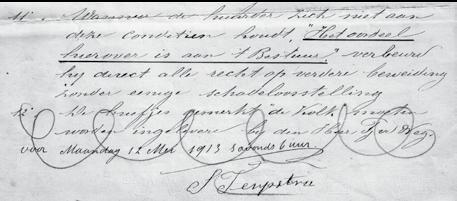 11. Wanneer de huurder zich niet aan
deze condities houdt, "Het oordeel
hierover is aan 't Bestuur," verbeurd
hij direct alle recht op verdere beweiding
zonder eenige schadeloosstelling
12. De briefjes gemerkt "de Kolk" moeten
worden ingeleverd bij den Heer
voor Maandag 12 Mei 1913 's avonds 6 uur.
S Terpstra